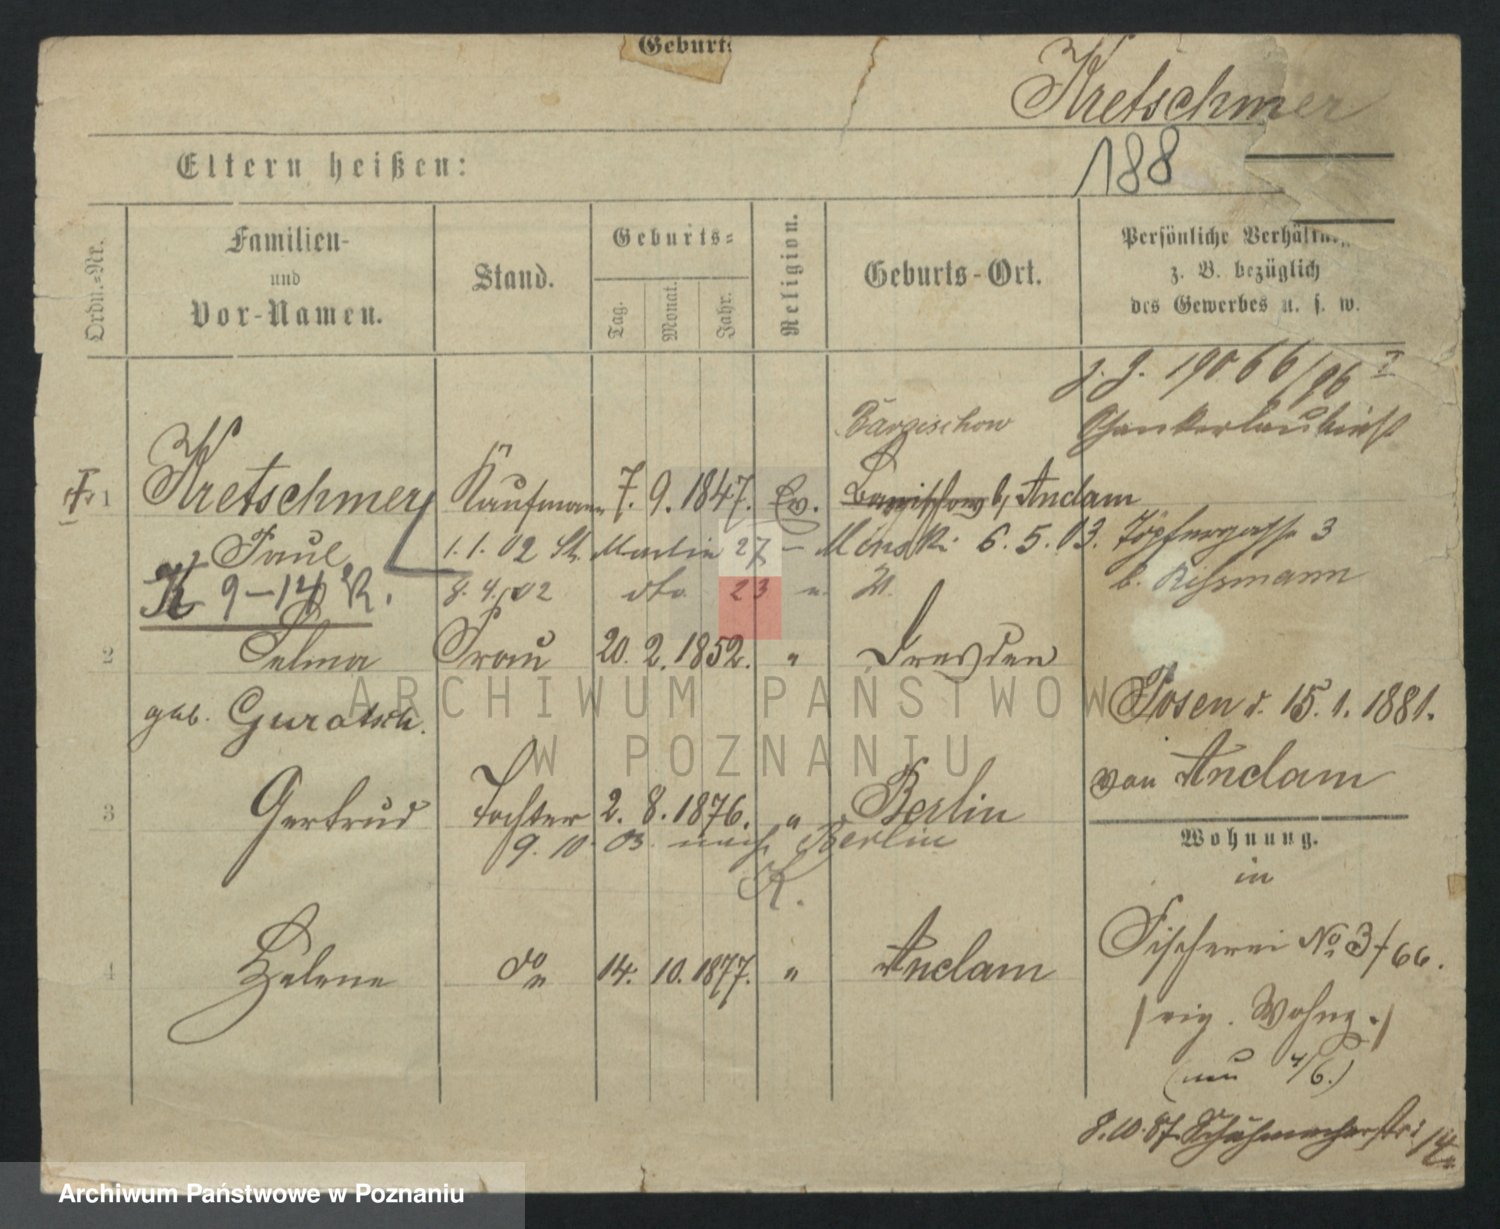 Geburts
Kretschmer
188
Eltern heißen:
Ordn.-Nr.
Familien-
und
Vor-Namen.
Stand.
Geburts-
Tag.
Monat.
Jahr.
Religion.
Geburts-Ort.
Persönliche Verhältn
z. B. bezüglich
des Gewerbes u. s. w.
J. J. 19066/96 I
Bargischow
Schankerlaubniß
1 Kretschmer Kaufmann 7. 9. 1847. Ev. Bargischow b/ Anclam
Paul 1. 1. 02 St. Martin 27 – 6. 5. 03. Töpfergasse 3
K 9-14 R. 8. 4. 02 dto 23 b. Rissmann
2 Selma Frau 20. 2. 1852. " Dresden
geb. Guratsch. Posen d. 15. 1. 1881.
von Anclam
3 Gertrud Tochter 2. 8. 1876. " Berlin
9. 10. 03. nach Berlin
K.
Wohnung.
in
Fischerei No 3/66.
4 Helene do 14. 10. 1877. " Anclam
/eig. Wohng./
(neu 4/6.)
8. 10. 87. Schuhmacherstr: 14
ARCHIWUM PAŃSTWOWE
W POZNANIU
Archiwum Państwowe w Poznaniu